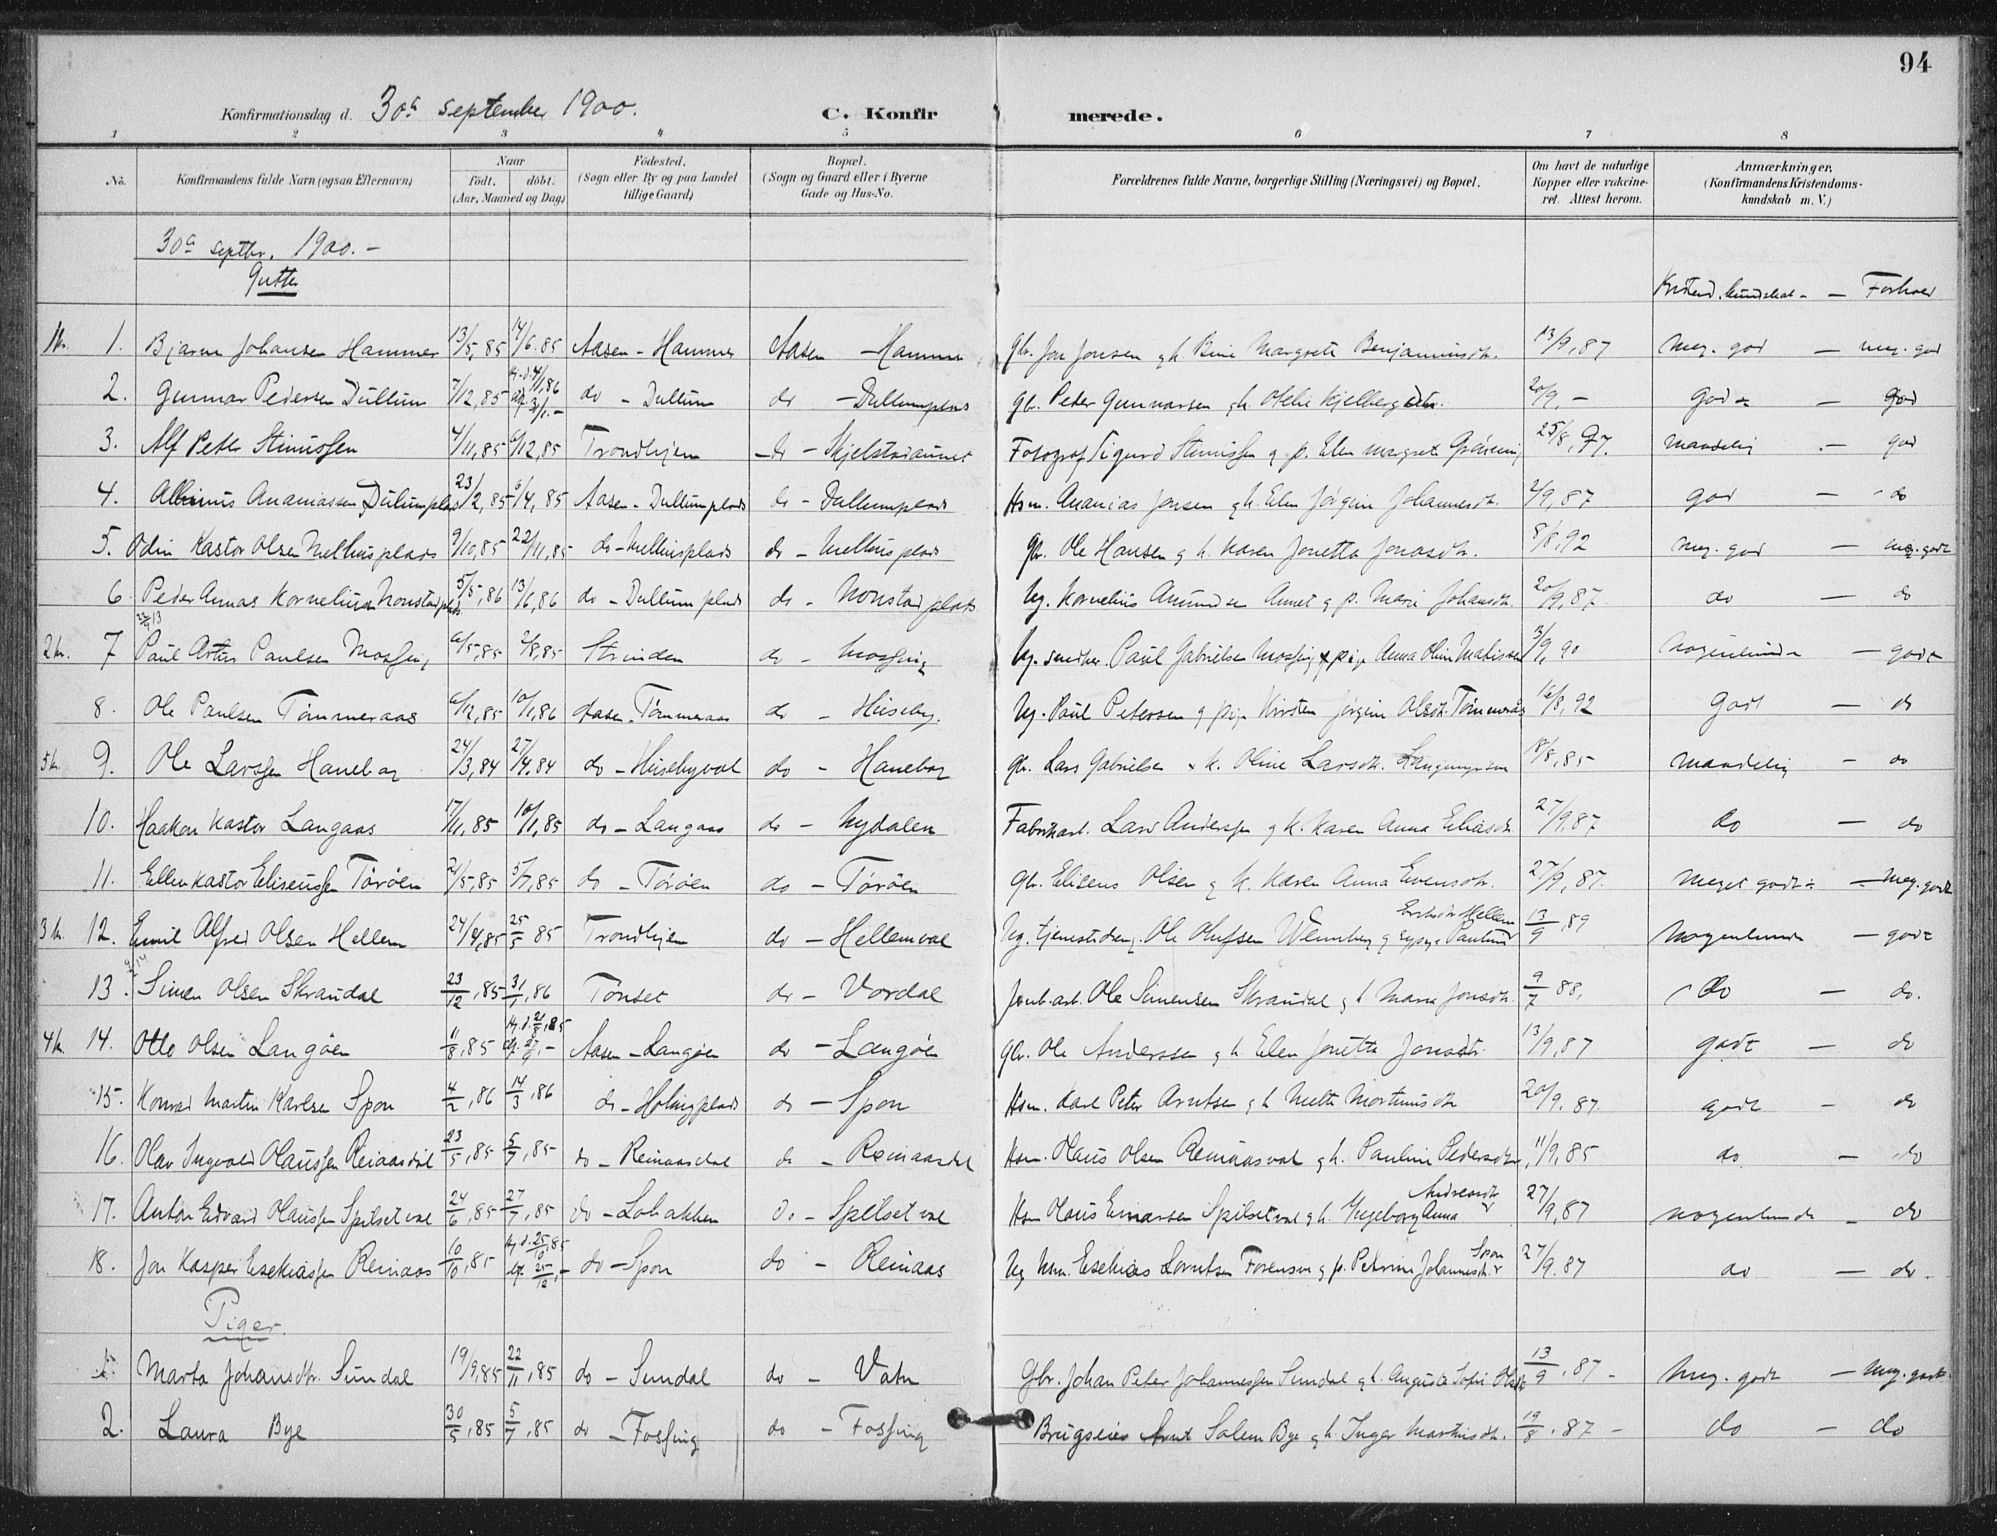 94
Konfirmationsdag d. 30te september 1900. C. Konfirmerede.
1 2 3 4 5 6 7 8
No. Konfirmandens fulde Navn (ogsaa Efternavn) Naar født, døbt. (Aar, Maaned og Dag) Fødested. (Sogn eller By og paa Landet tillige Gaard) Bopæl. (Sogn og Gaard eller i Byerne Gade og Hus-No. Forældrenes fulde Navne, borgerlige Stilling (Næringsvei) og Bopæl. Om havt de naturlige Kopper eller vakcineret. Attest herom. Anmærkninger, (Konfirmandens Kristendomskundskab m. V.)
30te septbr. 1900. –
Gutter
Kristend. kundskab – – Forhold
1. Bjarne Johansen Hammer 13/5, 85 14/6. 85 Aasen – Hammer Aasen – Hammer Gbr. Jon Jonsen g h. Margrete Benjaminsdtr. 13/9, 87 meg. god – meg. god
2. Gunnar Pedersen Dullum 7/12, 85 4/1, 86 do – Dullum do – Dullumplads Gbr. Peder Gunnarsen g h. Kjelbergsdtr. 20/9, – god – god
3. Alf Peter 4/11, 85 6/12, 85 Trondhjem do – Skjelstadaunet Fotograf Sigurd g. p. Elen Margrete 25/8, 97. maadelig – god
4. Albinus Ananiassen Dullumplads 23/2, 85 6/4, 85 Aasen – Dullumplads do – Dullumplads Hsm. Ananias Jonsen g h. Elen Jørgine Johannesdtr. 2/9, 87 god – do
5. Odin Kastor Olsen Melhusplads 9/10, 85 22/11, 85 do – Melhusplads do – Melhusplads Gbr. Ole Hansen g h. Karen Jonetta Jonasdtr. 8/8, 92 meg. god – meg. godt
6. Peder Annas Kornelius Nonstadplads 5/5, 86 13/6, 86 do – Dullumplads do – Nonstadplads Ug. Kornelius g p. Marie Johansdtr. 20/9, 87 do – do
2 k. 7 Paul Artur Paulsen Mossing 6/5, 85 2/8, 85 Strinden do – Mossing Ug. Paul Gabrielsen Mossing g pige Anna Oline 3/9, 90 nogenlunde – godt
8. Ole Paulsen Tømmeraas 6/12, 85 10/1, 86 Aasen – Tømmeraas do – Huseby. Ug. Paul Petersen g pige Kirsten Jørgine Olsdtr. Tømmerås 16/8, 92 godt – do
5 k. 9. Ole Larssen Hanebog 24/3, 84 27/4. 84 do – Husebyval do – Hanebog Gbr. Lars Gabrielsen & k. Oline Larsdtr. 18/8, 85 maadelig – do
10. Haakon Kastor Langaas 17/11, 85 10/11, 85 do – Langaas do – Nydalen Fabrikarb. Lars Anderssen g k. Karen Anna Eliasdtr. 27/9, 87 do – do
11. Ellen Kastor Eliseussen Tørøen 21/5, 85 5/7, 85 do – Tørøen do – Tørøen Gbr. Eliseus Olsen g k. Karen Anna Evensdtr. 27/9, 87. meget godt – – meg. godt
3 k. 12. Emil Alfred Olsen Hellem 24/4, 85 25/5 85 Trondhjem do – Hellemval Ug. tjenestedreng Ole Olufsen Wennberg g Hellem 13/9, 89 nogenlunde – godt
13. Simen Olsen Skraudal 23/12, 85 31/1, 86 Tønset do – Vordal Jernb. arb. Ole Simensen Skraudal g h. Jonsdtr. 9/7 88. do – do.
4 k. 14. Otto Olsen Langøen 11/8, 85 Aasen – Langøen do – Langøen Gbr. Ole Anderssen g h. Elen Jonetta Jonasdtr. 13/9, 87 godt – do
15. Konrad Martin Karlsen Spon 4/2, 86 14/3, 86 do – Holingplads do – Spon Hsm. Karl Peter Arntsen g h Mette 20/9. 87. godt – do
16. Olav Ingvald Olaussen Reinaasdal 23/5, 85 5/7, 85 do – Reinaasdal do – Reinaasdal Hsm. Olaus Olsen Reinaasval g h. Pauline Pedersdtr. 11/9, 85 do – do
17. Anton Edvard Olaussen Spilsetval 24/6, 85 27/7, 85 do – Lohakken do – Spilsetval Hsm Olaus Einarsen Spilsetval g h. Ingeborg Anna Andreasdtr 27/9, 87 nogenlunde – do
18. Jon Kasper Esekiassen Reinaas 10/10, 85 hj. d. 25/10, 85 25/12, – do – Spon do – Reinaas Ug. Esekias g p. Petrine Johannesdtr. Spon 27/9. 87 do – do.
Piger.
1. Marta Johansdtr. Sundal 19/9, 85 22/11, 85 do – Sundal do – Vatn Gbr. Johan Peter Johannessen Sundal g h. Augusta Sofie 13/9, 87 – meg. godt – meg. godt.
2. Laura Bye 30/5, 85 5/7, 85 do – Fossing do – Fossing Brugseier Arnt Salem Bye g h. Inger 19/8, 87 – do – do